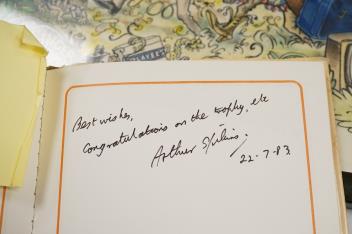 PLAYERS
Best wishes,
Congratulations on the trophy, etc
Arthur
22-7-83